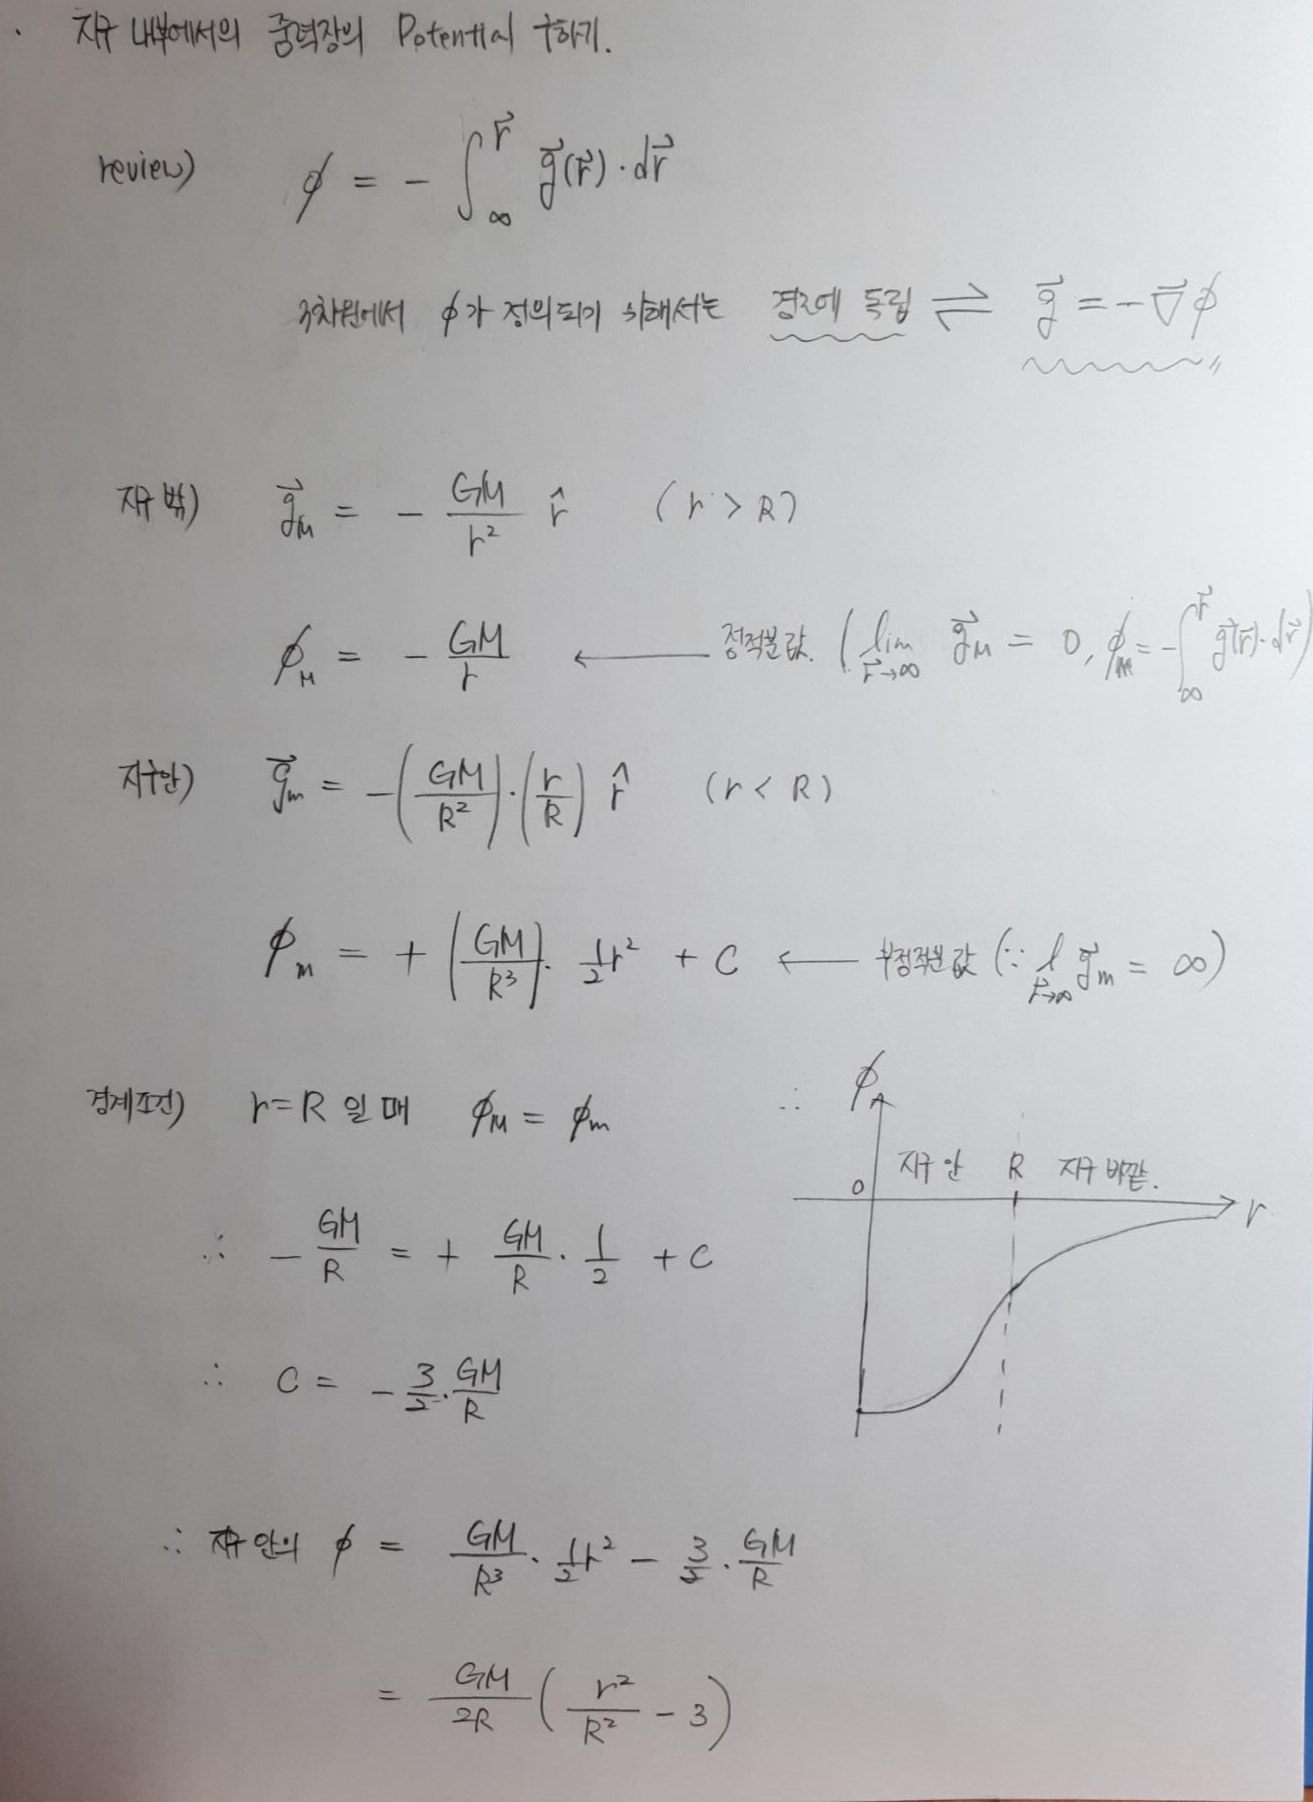 · 지구 내부에서의 중력장의 Potential 구하기.
review) φ = - ∫_∞^r⃗ g⃗(r⃗)·dr⃗
3차원에서 φ가 정의되기 위해서는 경로에 독립 ⇌ g⃗ = -∇⃗φ 〃
지구 밖) g⃗_M = - GM/r² r̂ (r > R)
φ_M = - GM/r ← 정적분값. ( lim_{r⃗→∞} g⃗_M = 0, φ_M = -∫_∞^r⃗ g⃗(r⃗)·dr⃗ )
지구안) g⃗_m = -(GM/R²)·(r/R) r̂ (r < R)
φ_m = + (GM/R³)· 1/2 r² + C ← 부정적분값 (∵ l_{r⃗→∞} g⃗_m = ∞)
경계조건) r=R 일 때 φ_M = φ_m
∴ - GM/R = + GM/R · 1/2 + C
∴ C = - 3/2 · GM/R
∴ φ
0 지구 안 R 지구 바깥.
r
∴ 지구 안의 φ = GM/R³ · 1/2 r² - 3/2 · GM/R
= GM/2R ( r²/R² - 3 )